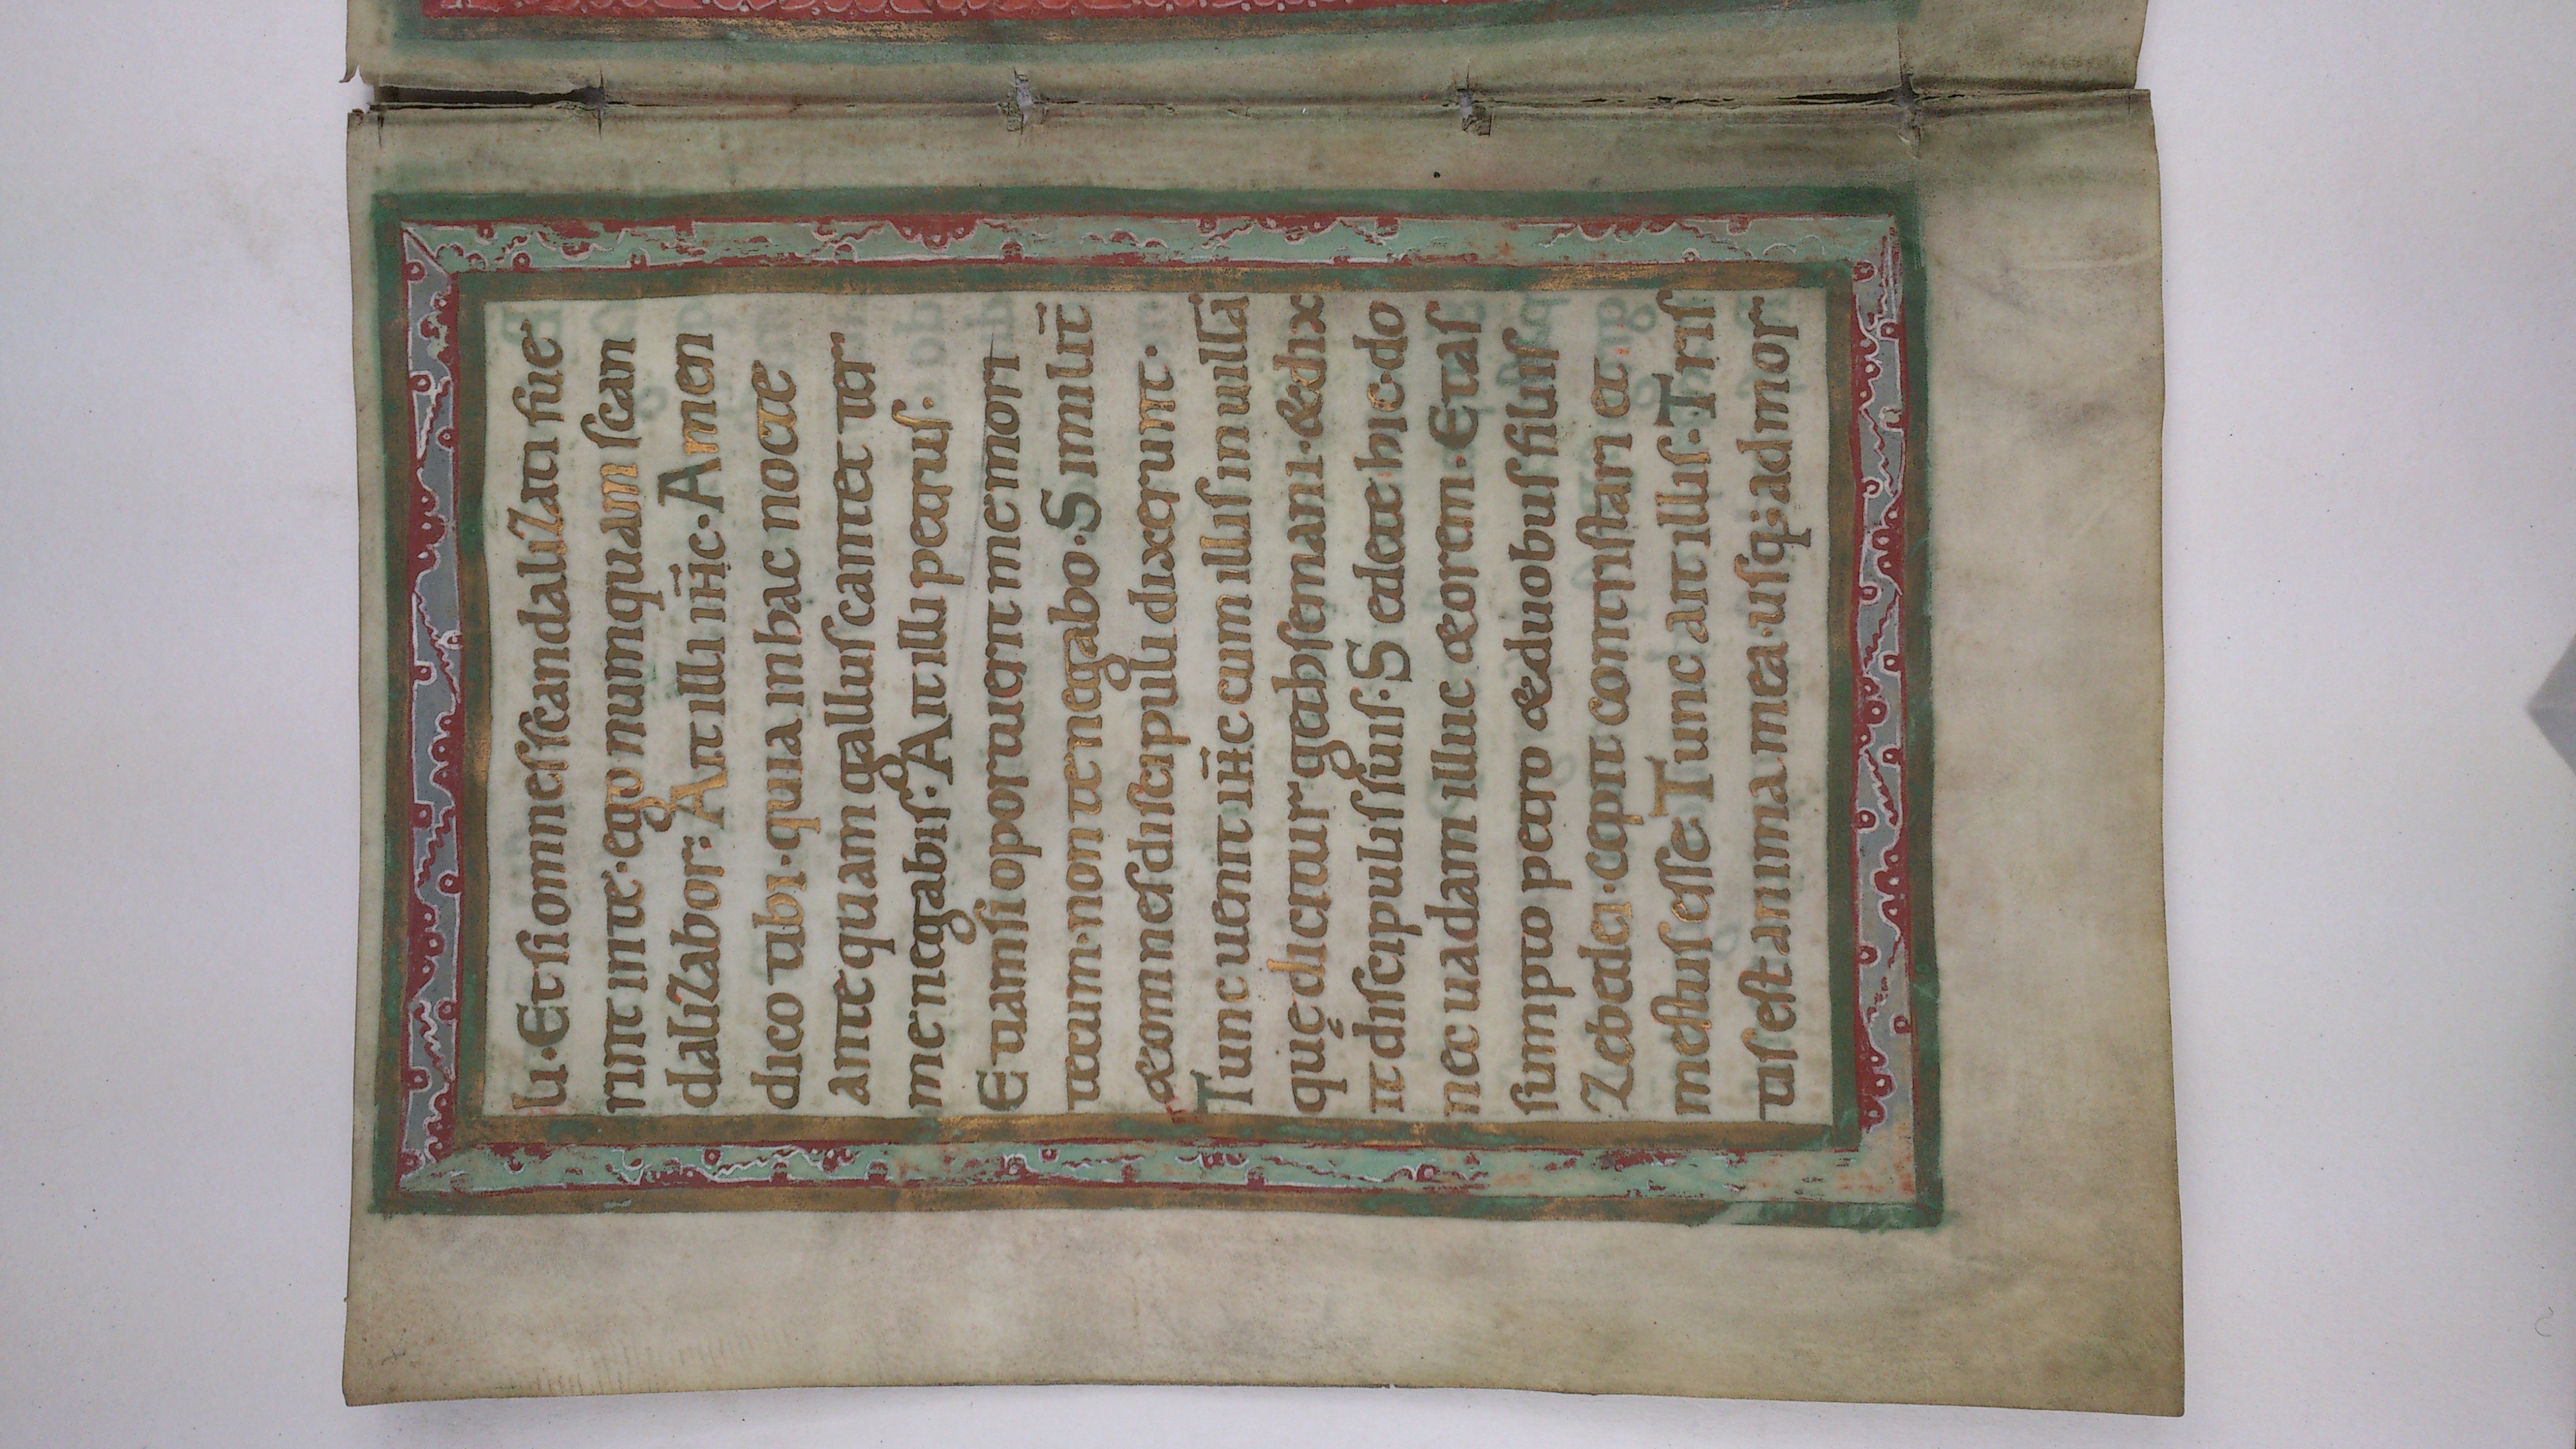 li· Et si omnes scandalizati fue
rint in te· ego numquam scan
dalizabor: Ait illi ihc· Amen
dico tibi· quia in hac nocte
ante quam gallus cantet ter
me negabis· Ait illi petrus·
Etiam si oportuerit me mori
tecum· non te negabo· Similit̄
&omnes discipuli dixerunt·
Tunc uenit ihc cum illis in uillā
quę dicitur gethsemani· &dix
it discipulis suis· Sedete hic· do
nec uadam illuc &orem· Et as
sumpto petro &duobus filiis
Zebedei· cepit contristari et
mestus esse Tunc ait illis· Tris
tis est anima mea· usq; ad mor